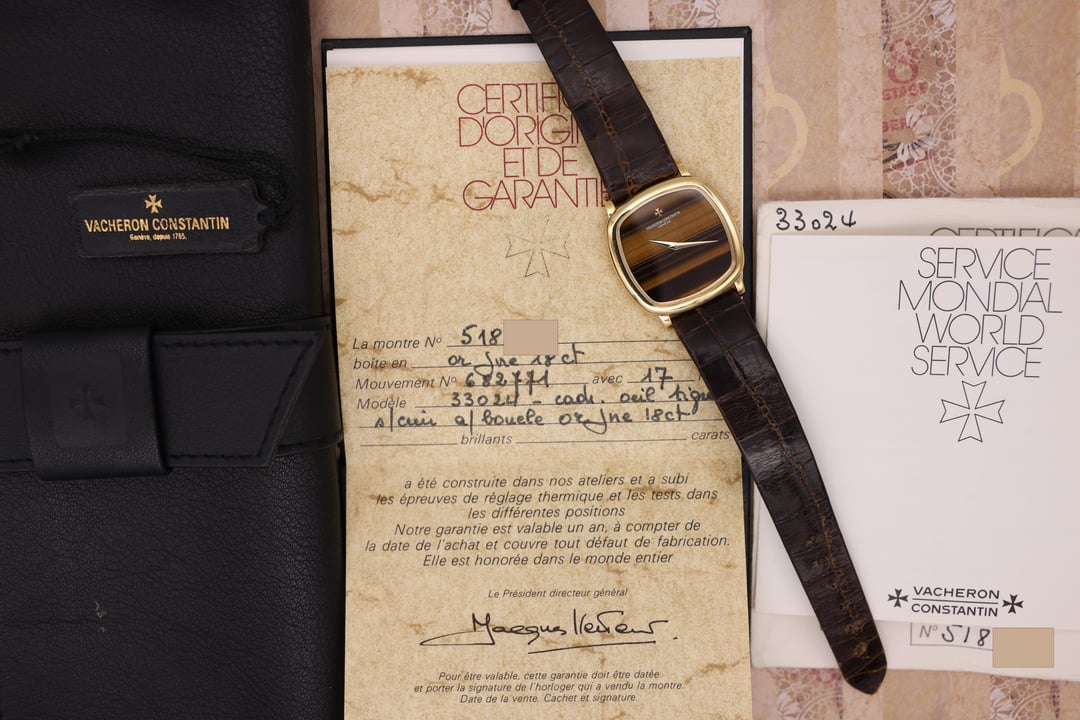 VACHERON CONSTANTIN
Genève, depuis 1785.
CERTIFI
D'ORIGIN
ET DE
GARANTIE
La montre No 518
boîte en or jne 18 ct
Mouvement No 682771 avec 17
Modèle 33024 - cadr. oeil tigre
s/cuir a/ boucle or jne 18ct
brillants carats
a été construite dans nos ateliers et a subi
les épreuves de réglage thermique et les tests dans
les différentes positions
Notre garantie est valable un an, à compter de
la date de l'achat et couvre tout défaut de fabrication.
Elle est honorée dans le monde entier
Le Président directeur général
Pour être valable, cette garantie doit être datée
et porter la signature de l'horloger qui a vendu la montre.
Date de la vente. Cachet et signature.
VACHERON CONSTANTIN
GENEVE
33024
CERTIFICA
SERVICE
MONDIAL
WORLD
SERVICE
VACHERON
CONSTANTIN
No 518